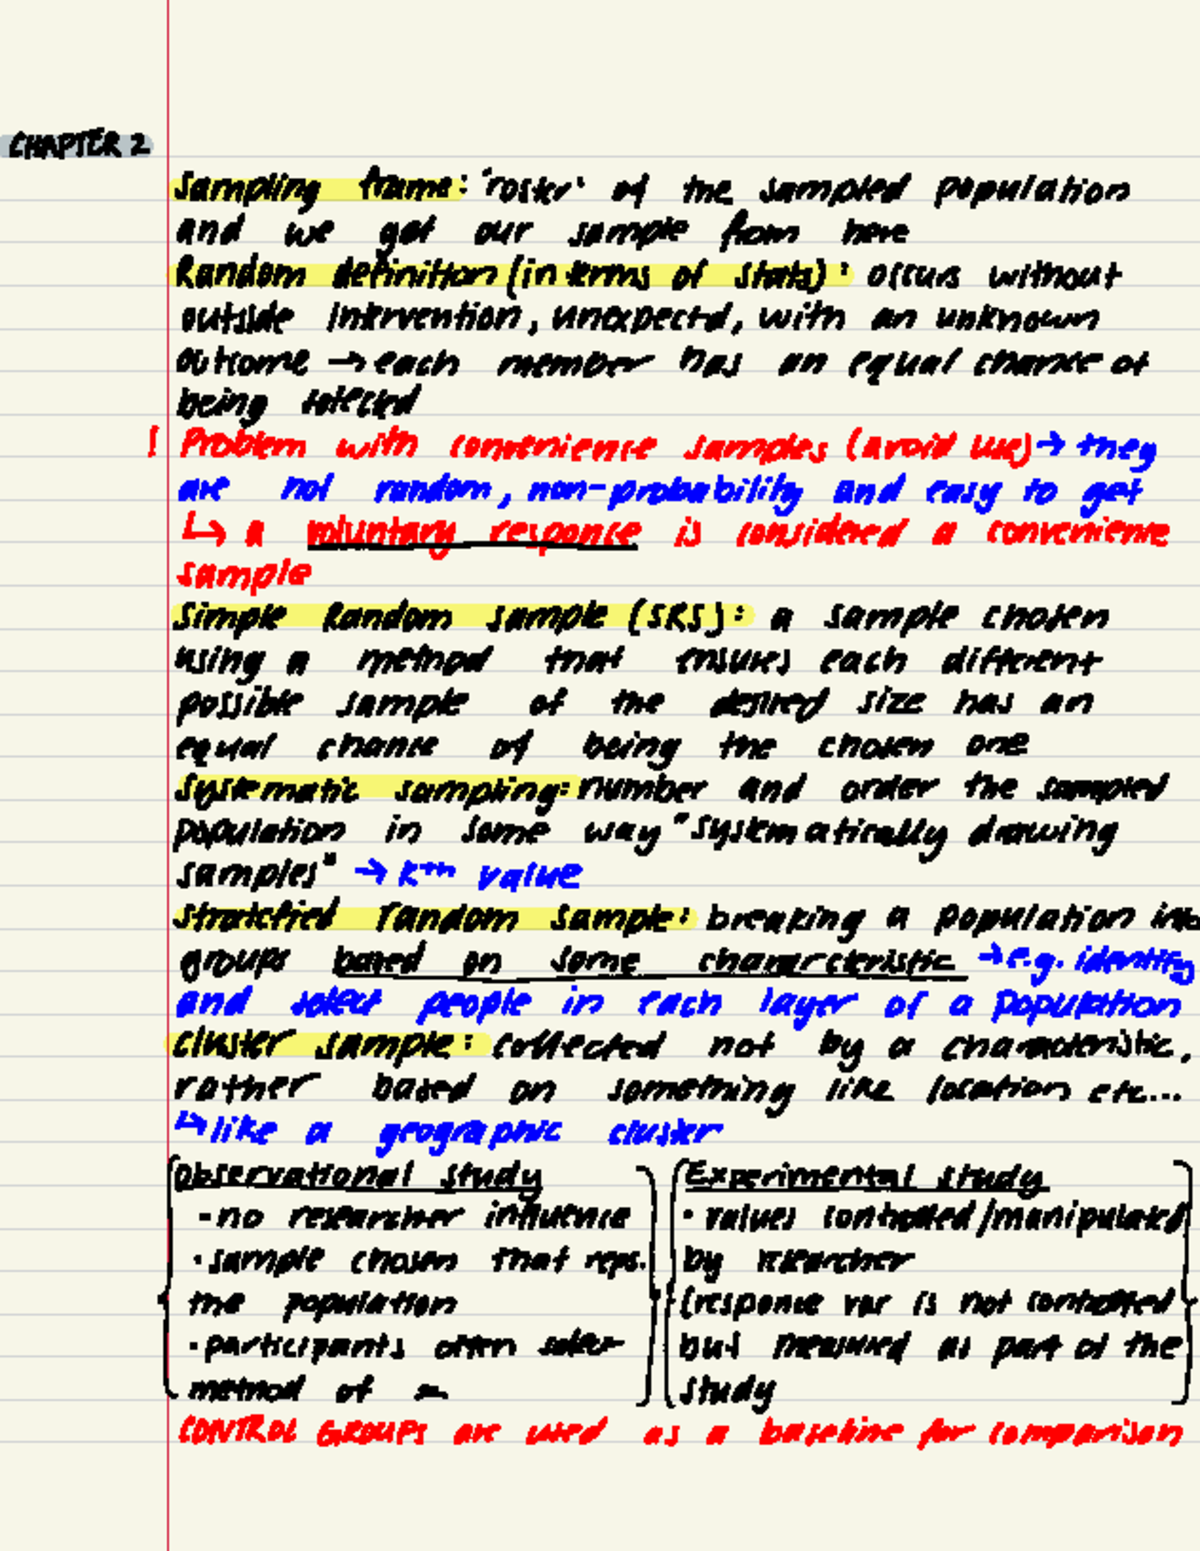 CHAPTER 2
Sampling frame: "roster" of the sampled population
and we get our sample from here
Random definition (in terms of stats): occurs without
outside intervention, unexpected, with an unknown
outcome → each member has an equal chance of
being selected
! Problem with convenience samples (avoid use) → they
are not random, non-probability and easy to get
↳ a voluntary response is considered a convenience
sample
Simple Random sample (SRS): a sample chosen
using a method that ensures each different
possible sample of the desired size has an
equal chance of being the chosen one
Systematic sampling: number and order the sampled
population in some way "systematically drawing
samples" → kth value
Stratified random sample: breaking a population into
groups based on some characteristic → e.g. identify
and select people in each layer of a population
Cluster sample: collected not by a characteristic,
rather based on something like location etc...
↳ like a geographic cluster
Observational study
- no researcher influence
· sample chosen that reps.
the population
· participants often select
method of
Experimental study
· values controlled/manipulated
by researcher
(response var is not controlled
but measured as part of the
study
CONTROL GROUPS are used as a baseline for comparison